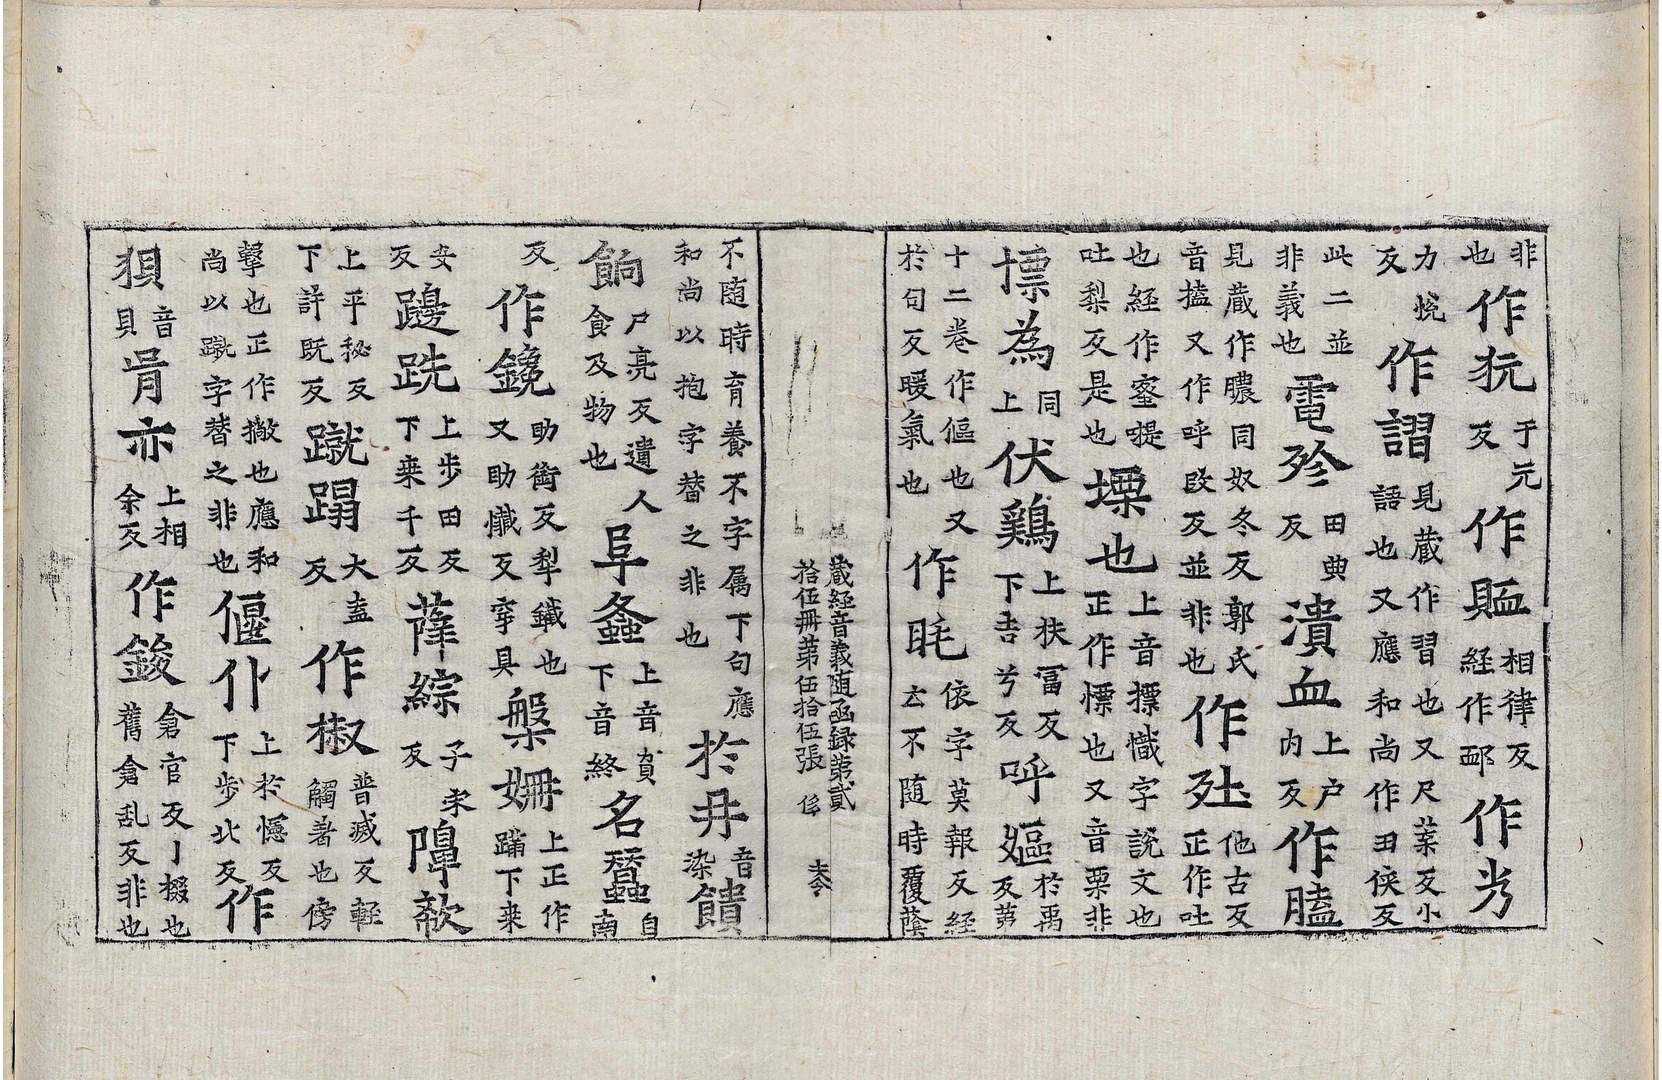 非也作㹠于元反作䘏相律反経作䣊作岁
力悦反作謵見蔵作習也又尺葉反小語也又應和尚作田侠反
此二並非義也電殄田典反潰血上户内反作膿
見蔵作膿同奴冬反郭氏音㯼又作呼改反並非也作𡊨他古反正作吐
也経作蜜㗣吐梨反是也慓也上音摽幟字說文也正作慓也又音栗非
摽為同上伏鷄上扶冨反下吉兮反呼嫗於禹反苐
十二巻作傴也又於句反暖氣也作眊依字莫報反経云不随時覆蔭
蔵経音義随函録苐貳拾伍冊苐伍拾伍張
不随時育養不字属下句應和尚以抱字替之非也於丹音染饋
餉尸亮反遺人食及物也阜螽上音負下音終名蠶自南
反作鑱助銜反犁鐵也又助懺反穿具槃姍上正作蹒下来
安反𨖠跣上步田反下来千反薩綜子宋反障欬
上平秘反下許既反蹴蹋大盍反作椒普烕反輕觸著也傍
擊也正作撇也應和尚以蹴字替之非也偃仆上於幰反下步北反作
狽音貝胥亦上相余反作鋑倉官反丁掇也舊倉乱反非也